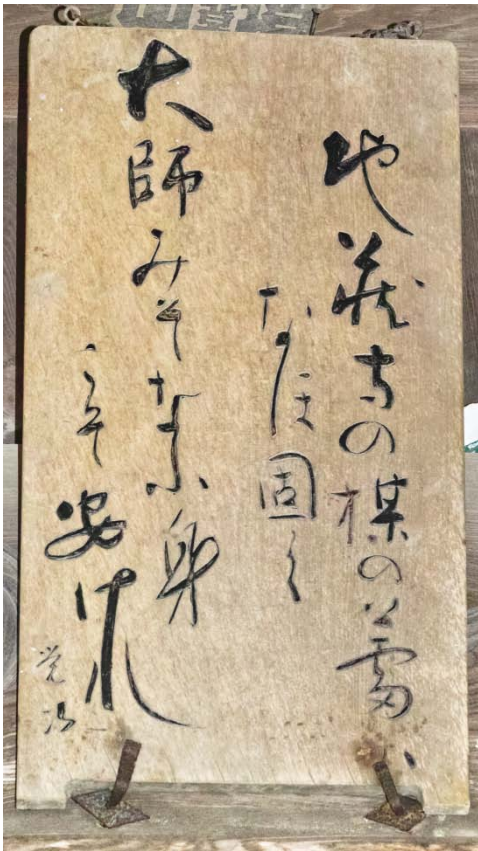 地蔵寺の楳の蕾ハ
なほ固く
大師みそなふ身
こそ安けれ